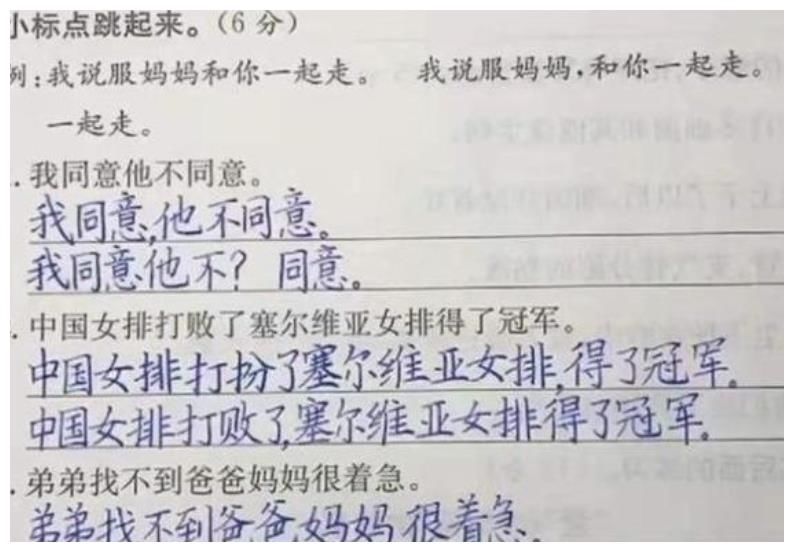 小标点跳起来。（6分）
例：我说服妈妈和你一起走。 我说服妈妈，和你一起走。
一起走。
. 我同意他不同意。
我同意,他不同意。
我同意他不？同意。
. 中国女排打败了塞尔维亚女排得了冠军。
中国女排打扮了塞尔维亚女排,得了冠军。
中国女排打败了,塞尔维亚女排得了冠军。
. 弟弟找不到爸爸妈妈很着急。
弟弟找不到爸爸,妈妈很着急。